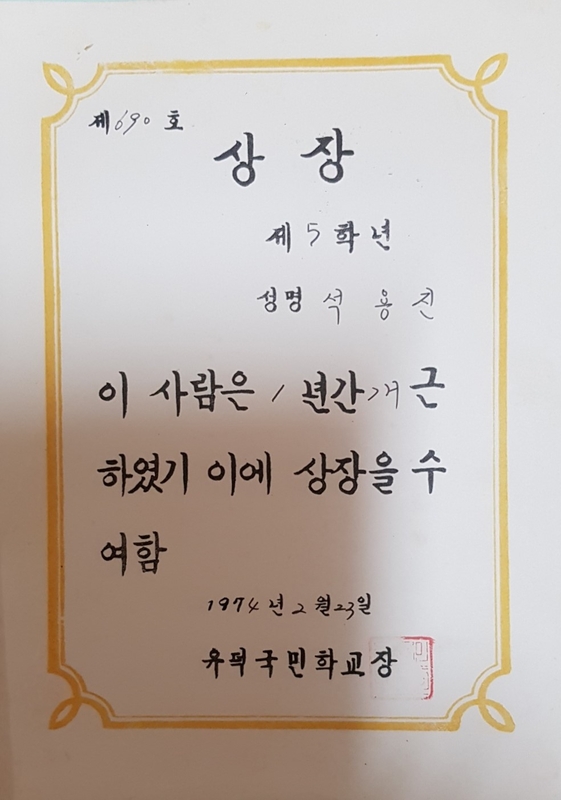 제690호
상장
제5학년
성명 석용진
이 사람은 1년간개근
하였기 이에 상장을 수
여함
1974년2월23일
유덕국민학교장